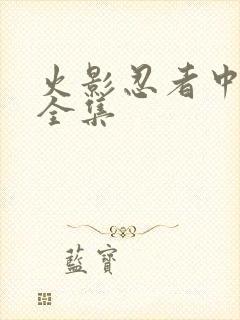 火影忍者中
全集
藍寶